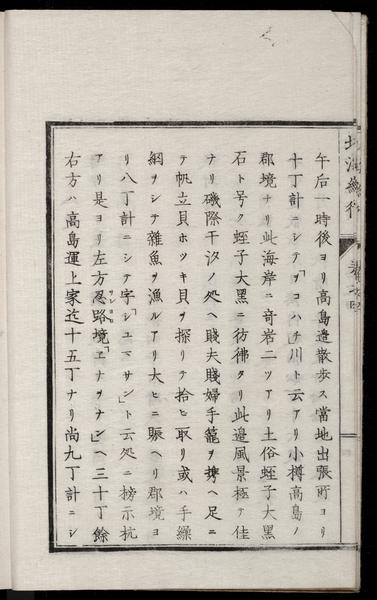 午后一時後ヨリ高島邉散歩ス當地出張所ヨリ
十丁計ニシテ「コハチ」川ト云アリ小樽高島ノ
郡境ナリ此海岸ニ奇岩二ツアリ土俗蛭子大黒
石ト号ク蛭子大黒ニ彷彿タリ此邉風景極テ佳
ナリ磯際干汐ノ処ヘ賤夫賤婦手籠ヲ携ヘ足ニ
テ帆立貝ホツキ貝ヲ探リテ拾ヒ取リ或ハ手繰
網ヲシテ雜魚ヲ漁ルアリ大ヒニ賑ヘリ郡境ヨ
リ八丁計ニシテ字「シユマサン」ト云処ニ榜示杭
アリ是ヨリ左方忍路境「ヱナヲナン」ヘ三十丁餘
右方ハ高島運上家迄十五丁ナリ尚九丁計ニシ